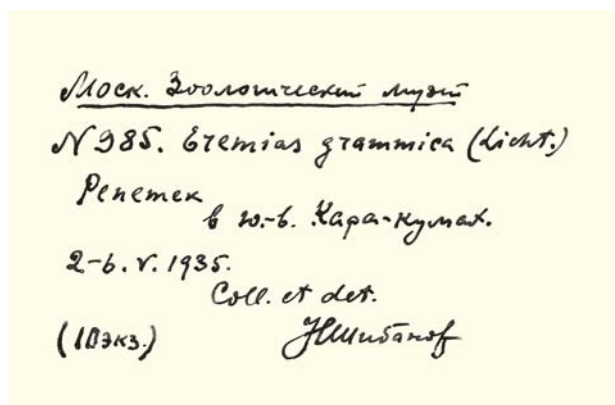 Моск. Зоологический музей
N 985. Eremias grammica (Licht.)
Репетек
в ю.-в. Кара-кумах.
2-6. V. 1935.
Coll. et det.
(10 экз.) НШибанов